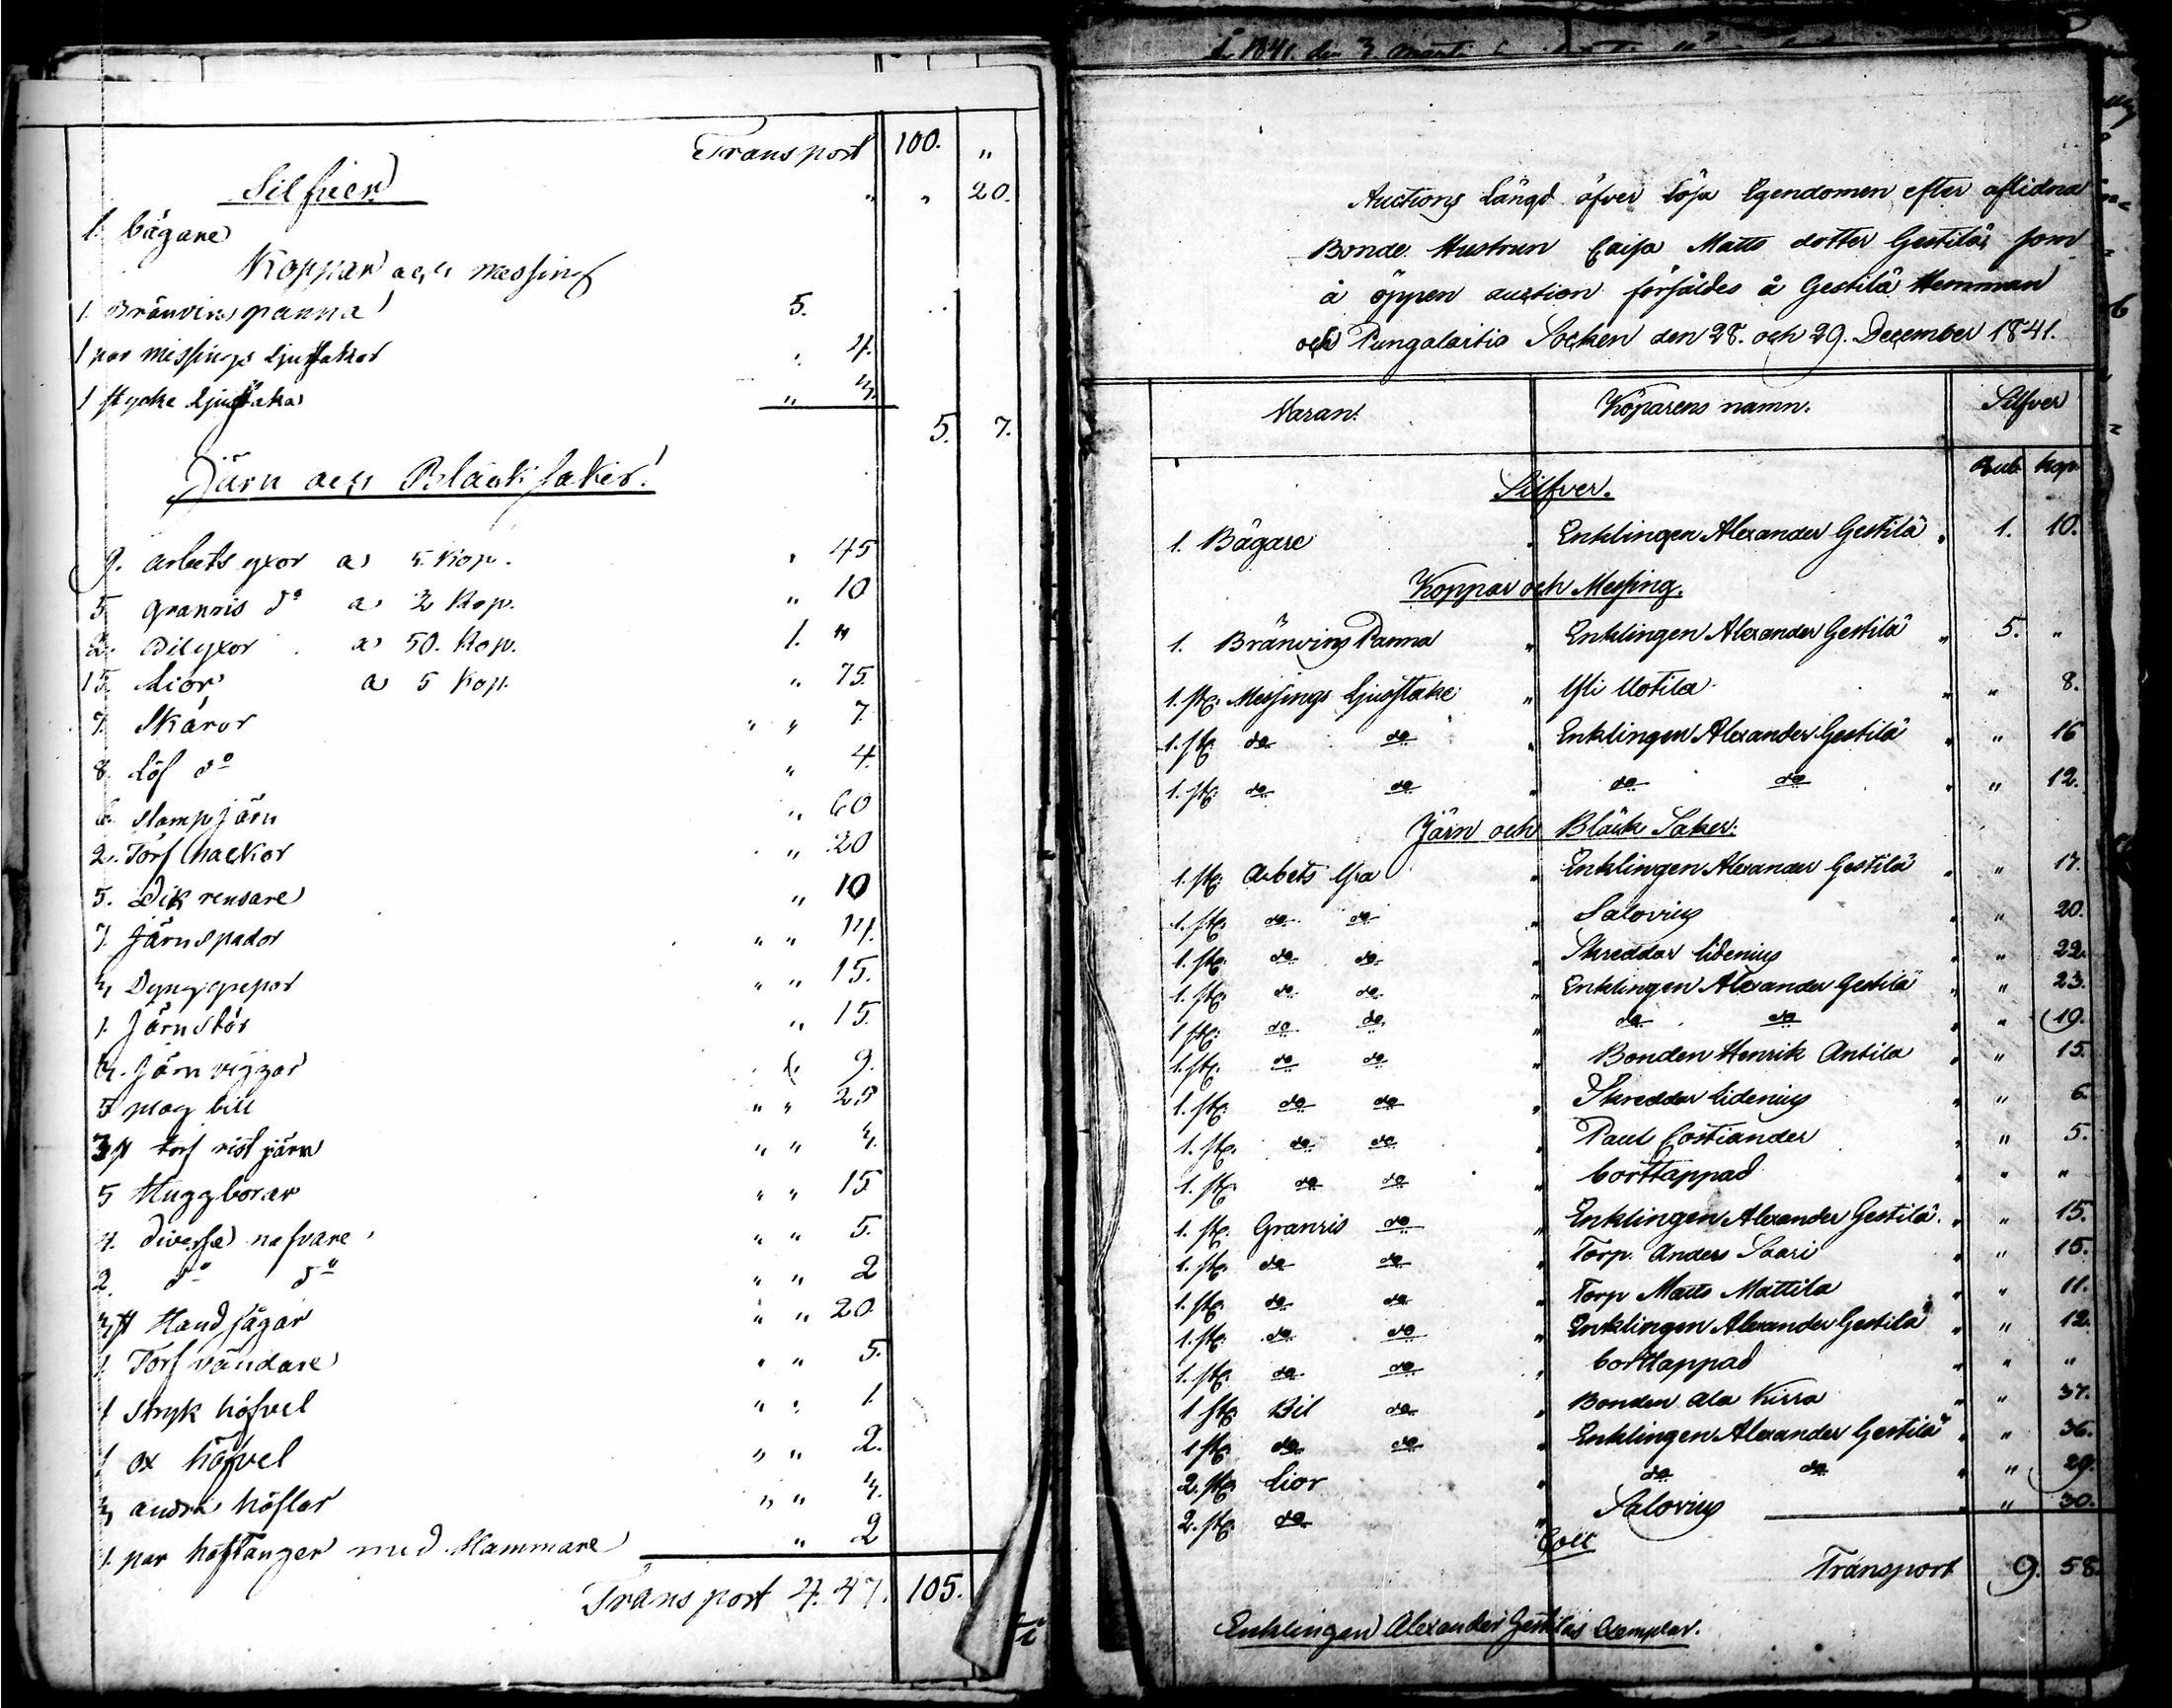 Transport 100. "
Silfver " " 20.
1. bägare
Koppar och messing
1. Bränvins panna 5.
1 par messings ljusstakar " 4.
1 stycke ljusstaka " 3.
5. 7.
Järn och Bläck saker.
9. arbets yxor a 5. Kop. " 45
5 granris do a 2 Kop. " 10
2. Bil yxor a 50. Kop. 1. "
15 Lior a 5 Kop. " 75
7. Skäror " " 7.
8. Löf do " 4.
6. stamp järn " 60
2. Torf hackor " 20
5. Dik rensare " 10
7. Järnspador " " 14.
3 Dynggrepar " " 15.
1. Järnstör " 15.
3. Järn viggar " 9.
5 plog bill " " 25
3 st torf rist järn " " 3.
5 Huggborar " " 15
4. diverse nafvare " " 5.
2. do do " " 2
3 st Handsågar " " 20.
1. Torf vändare " " 5.
1 stryk höfvel " " 1.
1 ox höfvel " " 2.
3 andra höflar " " 3.
1. par hoftänger med Hammare " 2
Transport 4. 47. 105.
Å 1841. den 3. Marti
Auctions Längd öfver Lösa Egendomen efter aflidna
Bonde Hustrun Caisa Matts dotter Gestilä, som
å öppen auction försåldes å Gestilä Hemman
och Pungalaitio Socken den 28. och 29. December 1841.
Varan. Köparens namn. Silfver
Rub. kop.
Silfver.
1. Bägare " Enklingen Alexander Gestilä " 1. 10.
Koppar och Messing.
1. Bränvins Panna " Enklingen Alexander Gestilä " 5. "
1. st. Messings Ljusstake " Yli Uotila " " 8.
1. st. do do " Enklingen Alexander Gestilä " " 16
1. st. do do " do do " " 12.
Järn och Bläck Saker.
1. st. Arbets Yxa " Enklingen Alexander Gestilä " " 17.
1. st. do do " Salovius " " 20.
1. st. do do " Skreddar Lidenius " " 22.
1. st. do do " Enklingen Alexander Gestilä " " 23.
1 st. do do " do do " " 19.
1. st. do do " Bonden Henrik Antila " " 15.
1. st. do do " Skreddar Lidenius " " 6.
1. st. do do " Paul Costiander " " 5.
1. st. do do " borttappad " " "
1. st. Granris do " Enklingen Alexander Gestilä. " " 15.
1. st. do do " Torp. Anders Saari " " 15.
1. st. do do " Torp Matts Mattila " " 11.
1. st. do do " Enklingen Alexander Gestilä " " 12.
1. st. do do " borttappad " " "
1 st. Bil do " Bonden Ala Kirra " " 37.
1 st. do do " Enklingen Alexander Gestilä " " 36.
2. st. Lior " do do " " 29.
2. st. do " Salovius " " 30.
Transport 9. 58.
Enklingen Alexander Gestiläs Exemplar.